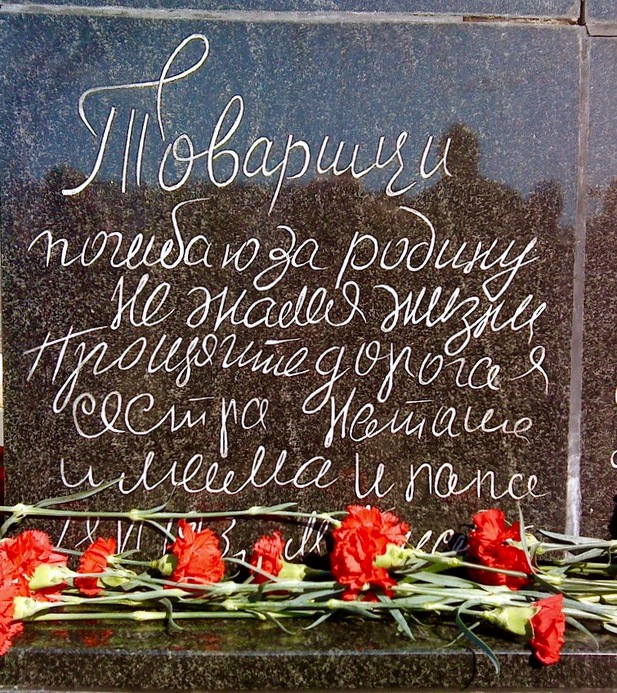 Товарищи
погибаю за родину
Не жалея жизни
Прощайте дорогая
сестра Наташа
и мама и папа